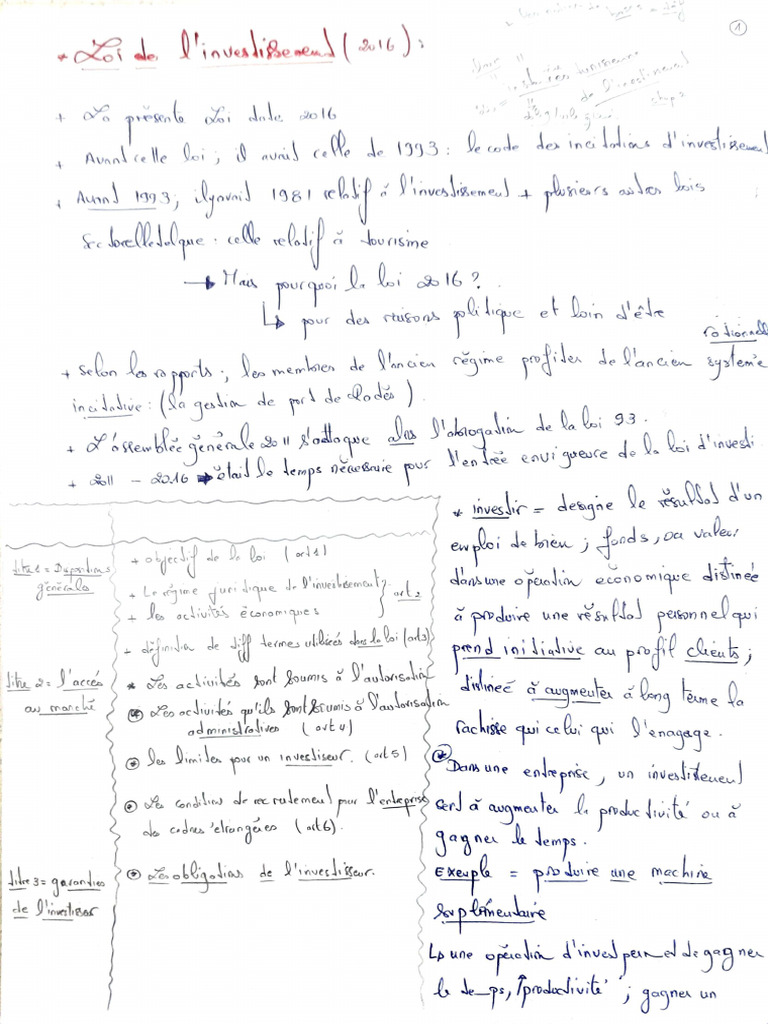 1
* Loi de l'investissement (2016) :
+ La présente Loi date 2016
+ Avant cette loi ; il avait celle de 1993 : le code des incitations d'investissement
+ Avant 1993 ; ilyavait 1981 relatif à l'investissement + plusieurs autres lois
sectorelletelque : celle relatif à tourisime
→ Mais pourquoi la loi 2016 ?
↳ pour des raisons politique et loin d'être
rationnelle
+ Selon les rapports ; les membres de l'ancien régime profiter de l'ancien système
incitative : (la gestion de port de Radès).
+ L'assemblée générale 2011 s'attaque alos l'abrogation de la loi 93.
+ 2011 - 2016 → était le temps nécessaire pour l'entrée envigueure de la loi d'investi
titre 1 = Dispositions
générales
+ objectif de la loi (art 1)
+ Le régime juridique de l'investissement
+ les activités économiques
} art 2
+ définition de diff termes utilisées dans la loi (art3)
titre 2 = l'accès
au marché
* Les activités sont soumis à l'autorisation
* Les activités qu'ils sont soumis à l'autorisation
administratives (art 4)
* les limites pour un investiseur. (art 5)
* Les condition de recrutement pour l'entreprise
des cadres étrangères (art 6).
titre 3 = garanties
de l'investisser
* Les obligations de l'investisseur.
* investir = designe le résultat d'un
emploi de bien ; fonds, ou valeur
dans une opération économique distineé
à produire une résultat personnel qui
prend initiative au profil clients ;
distineé à augmenter à long terme la
rachisse qui celui qui l'enagage.
* Dans une entreprise, un investissement
sert à augmenter la productivité ou à
gagner le temps.
Exemple = produire une machine
supplémentaire
↳ une opération d'invest permet de gagner
le temps, ↑productivité ; gagner un